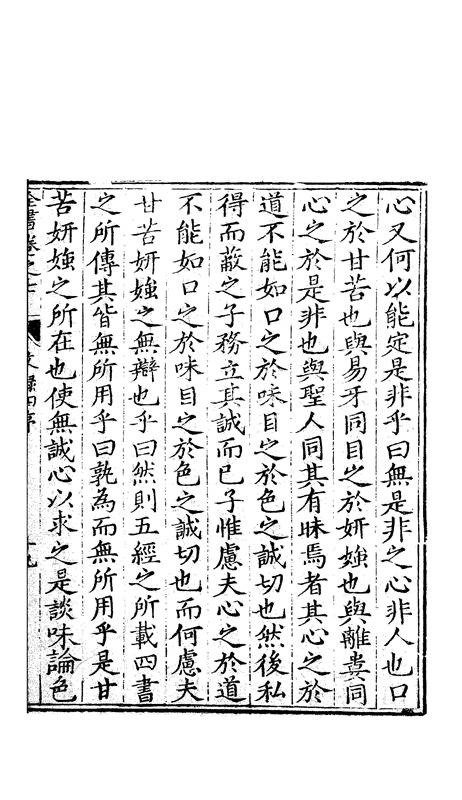 心又何以能定是非乎曰無是非之心非人也口
之於甘苦也與易牙同目之於妍媸也與離婁同
心之於是非也與聖人同其有昧焉者其心之於
道不能如口之於味目之於色之誠切也然後私
得而蔽之子務立其誠而已子惟慮夫心之於道
不能如口之於味目之於色之誠切也而何慮夫
甘苦妍媸之無辯也乎曰然則五經之所載四書
之所傳其皆無所用乎曰孰為而無所用乎是甘
苦妍媸之所在也使無誠心以求之是談味論色
全書卷之七 文錄四序